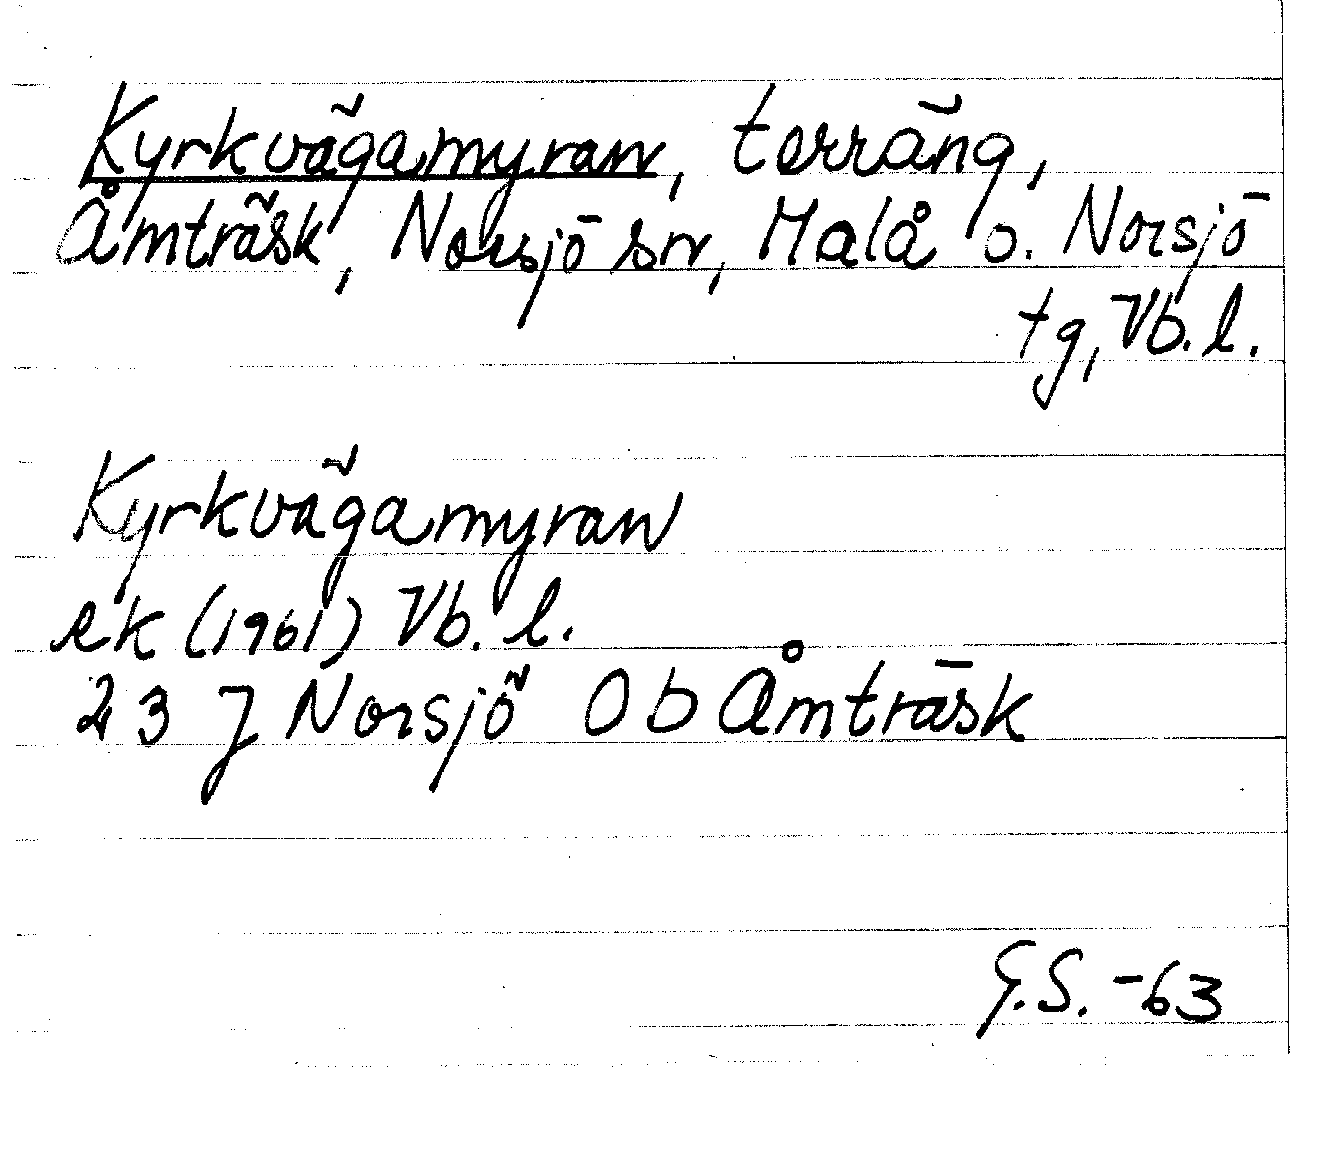 Kyrkvägamyran, terräng,
Åmträsk, Norsjö sn, Malå o. Norsjö
tg, Vb. l.
Kyrkvägamyran
ek (1961) Vb. l.
23 J Norsjö Ob Åmträsk
G.S. -63